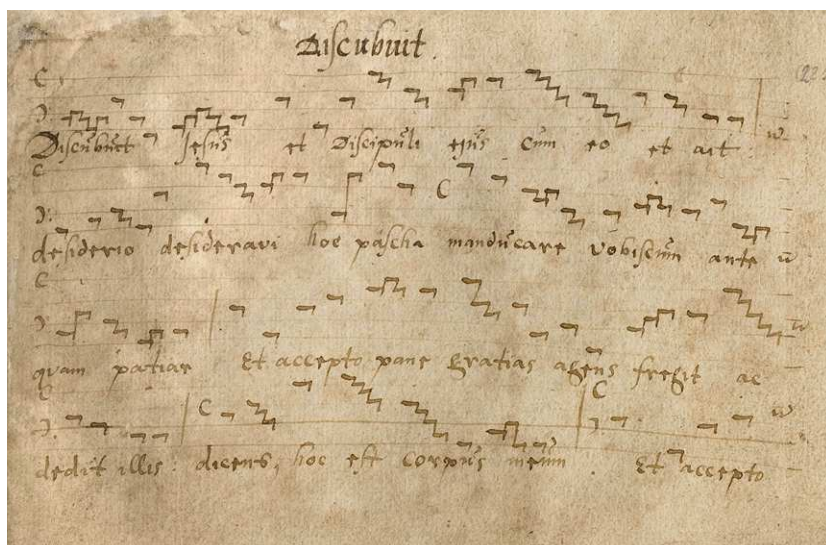 Discubuit.
Discubuit Jesus et Discipuli ejus cum eo et ait
desiderio desideravi hoc pascha manducare vobiscum ante
quam patiar Et accepto pane gratias agens fregit ac
dedit illis: dicens, hoc est corpus meum. Et accepto